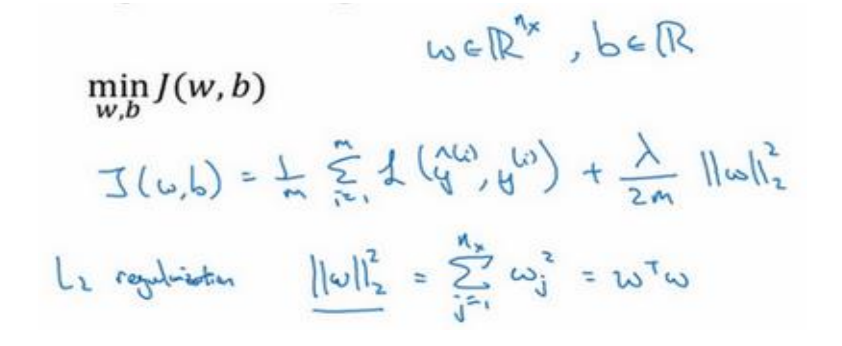 w ∈ ℝ^{n_x}, b ∈ ℝ
min_{w,b} J(w, b)
J(w,b) = \frac{1}{m} \sum_{i=1}^{m} ℒ(ŷ^{(i)}, y^{(i)}) + \frac{λ}{2m} ||w||_2^2
L_2 regularization ||w||_2^2 = \sum_{j=1}^{n_x} w_j^2 = w^T w